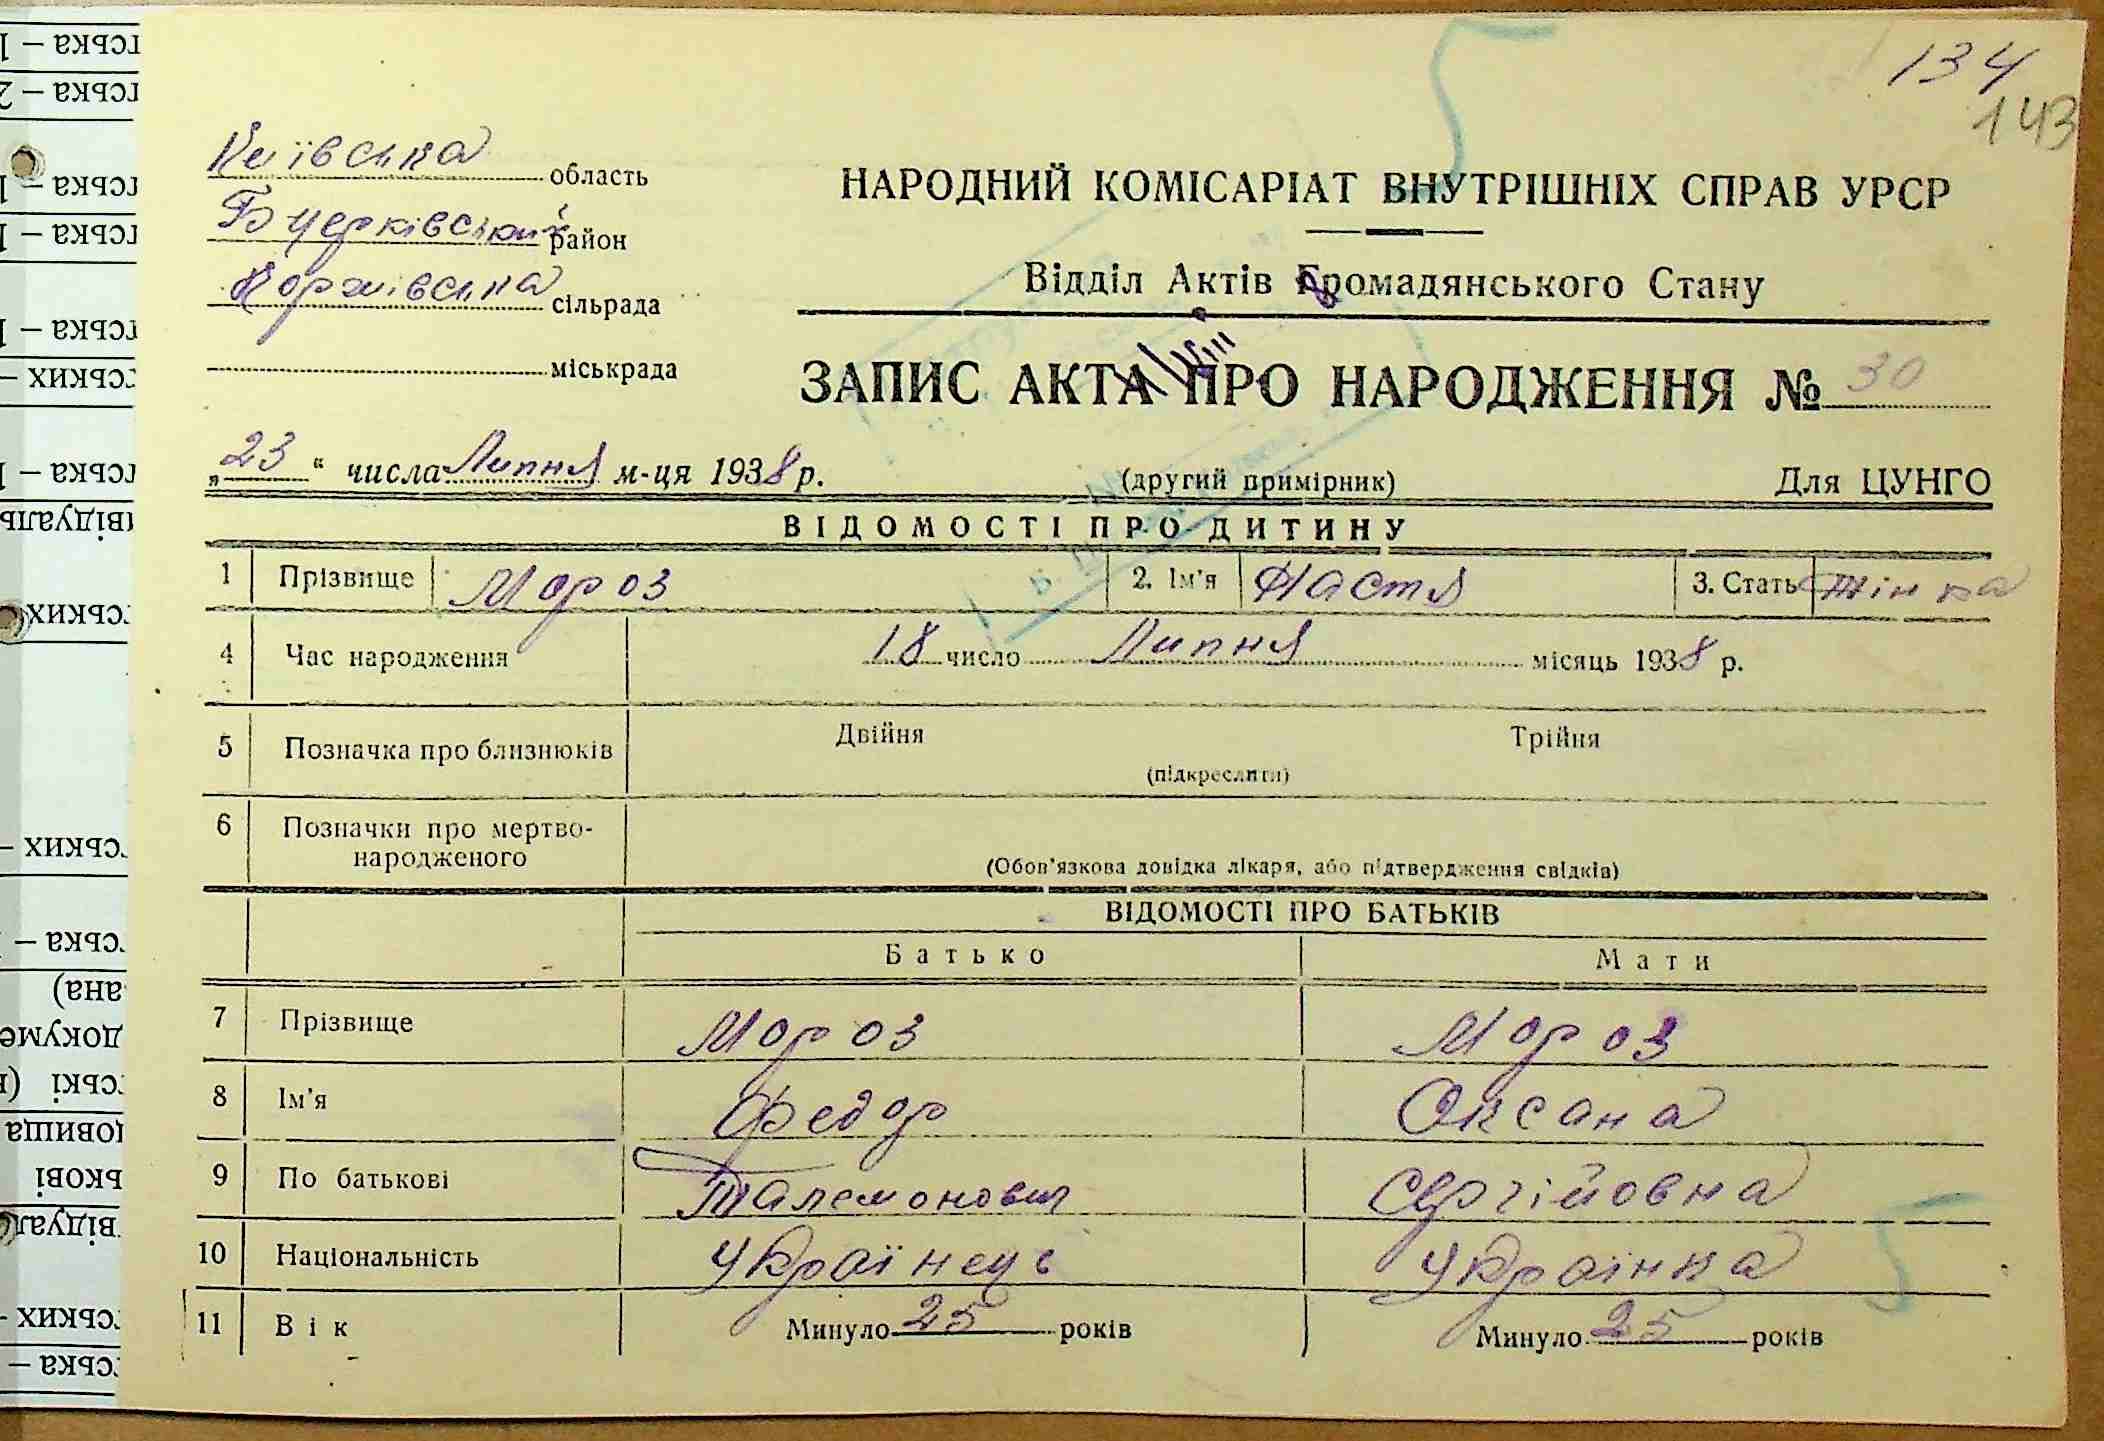 134
143
5
Київська область
Б церківський район
Коржівська сільрада
міськрада
НАРОДНИЙ КОМІСАРІАТ ВНУТРІШНІХ СПРАВ УРСР
Відділ Актів Громадянського Стану
ЗАПИС АКТА ПРО НАРОДЖЕННЯ № 30
„23“ числа Липня м-ця 1938 р.
(другий примірник)
Для ЦУНГО
ВІДОМОСТІ ПРО ДИТИНУ
1 Прізвище Мороз 2. Ім'я Настя 3. Стать жінка
4 Час народження 18 число Липня місяць 1938 р.
5 Позначка про близнюків Двійня Трійня
(підкреслити)
6 Позначки про мертво-
народженого
(Обов'язкова довідка лікаря, або підтвердження свідків)
ВІДОМОСТІ ПРО БАТЬКІВ
Батько Мати
7 Прізвище Мороз Мороз
8 Ім'я Федор Оксана
9 По батькові Палемонович Сергійовна
10 Національність Українець Українка
5
11 Вік Минуло 25 років Минуло 25 років